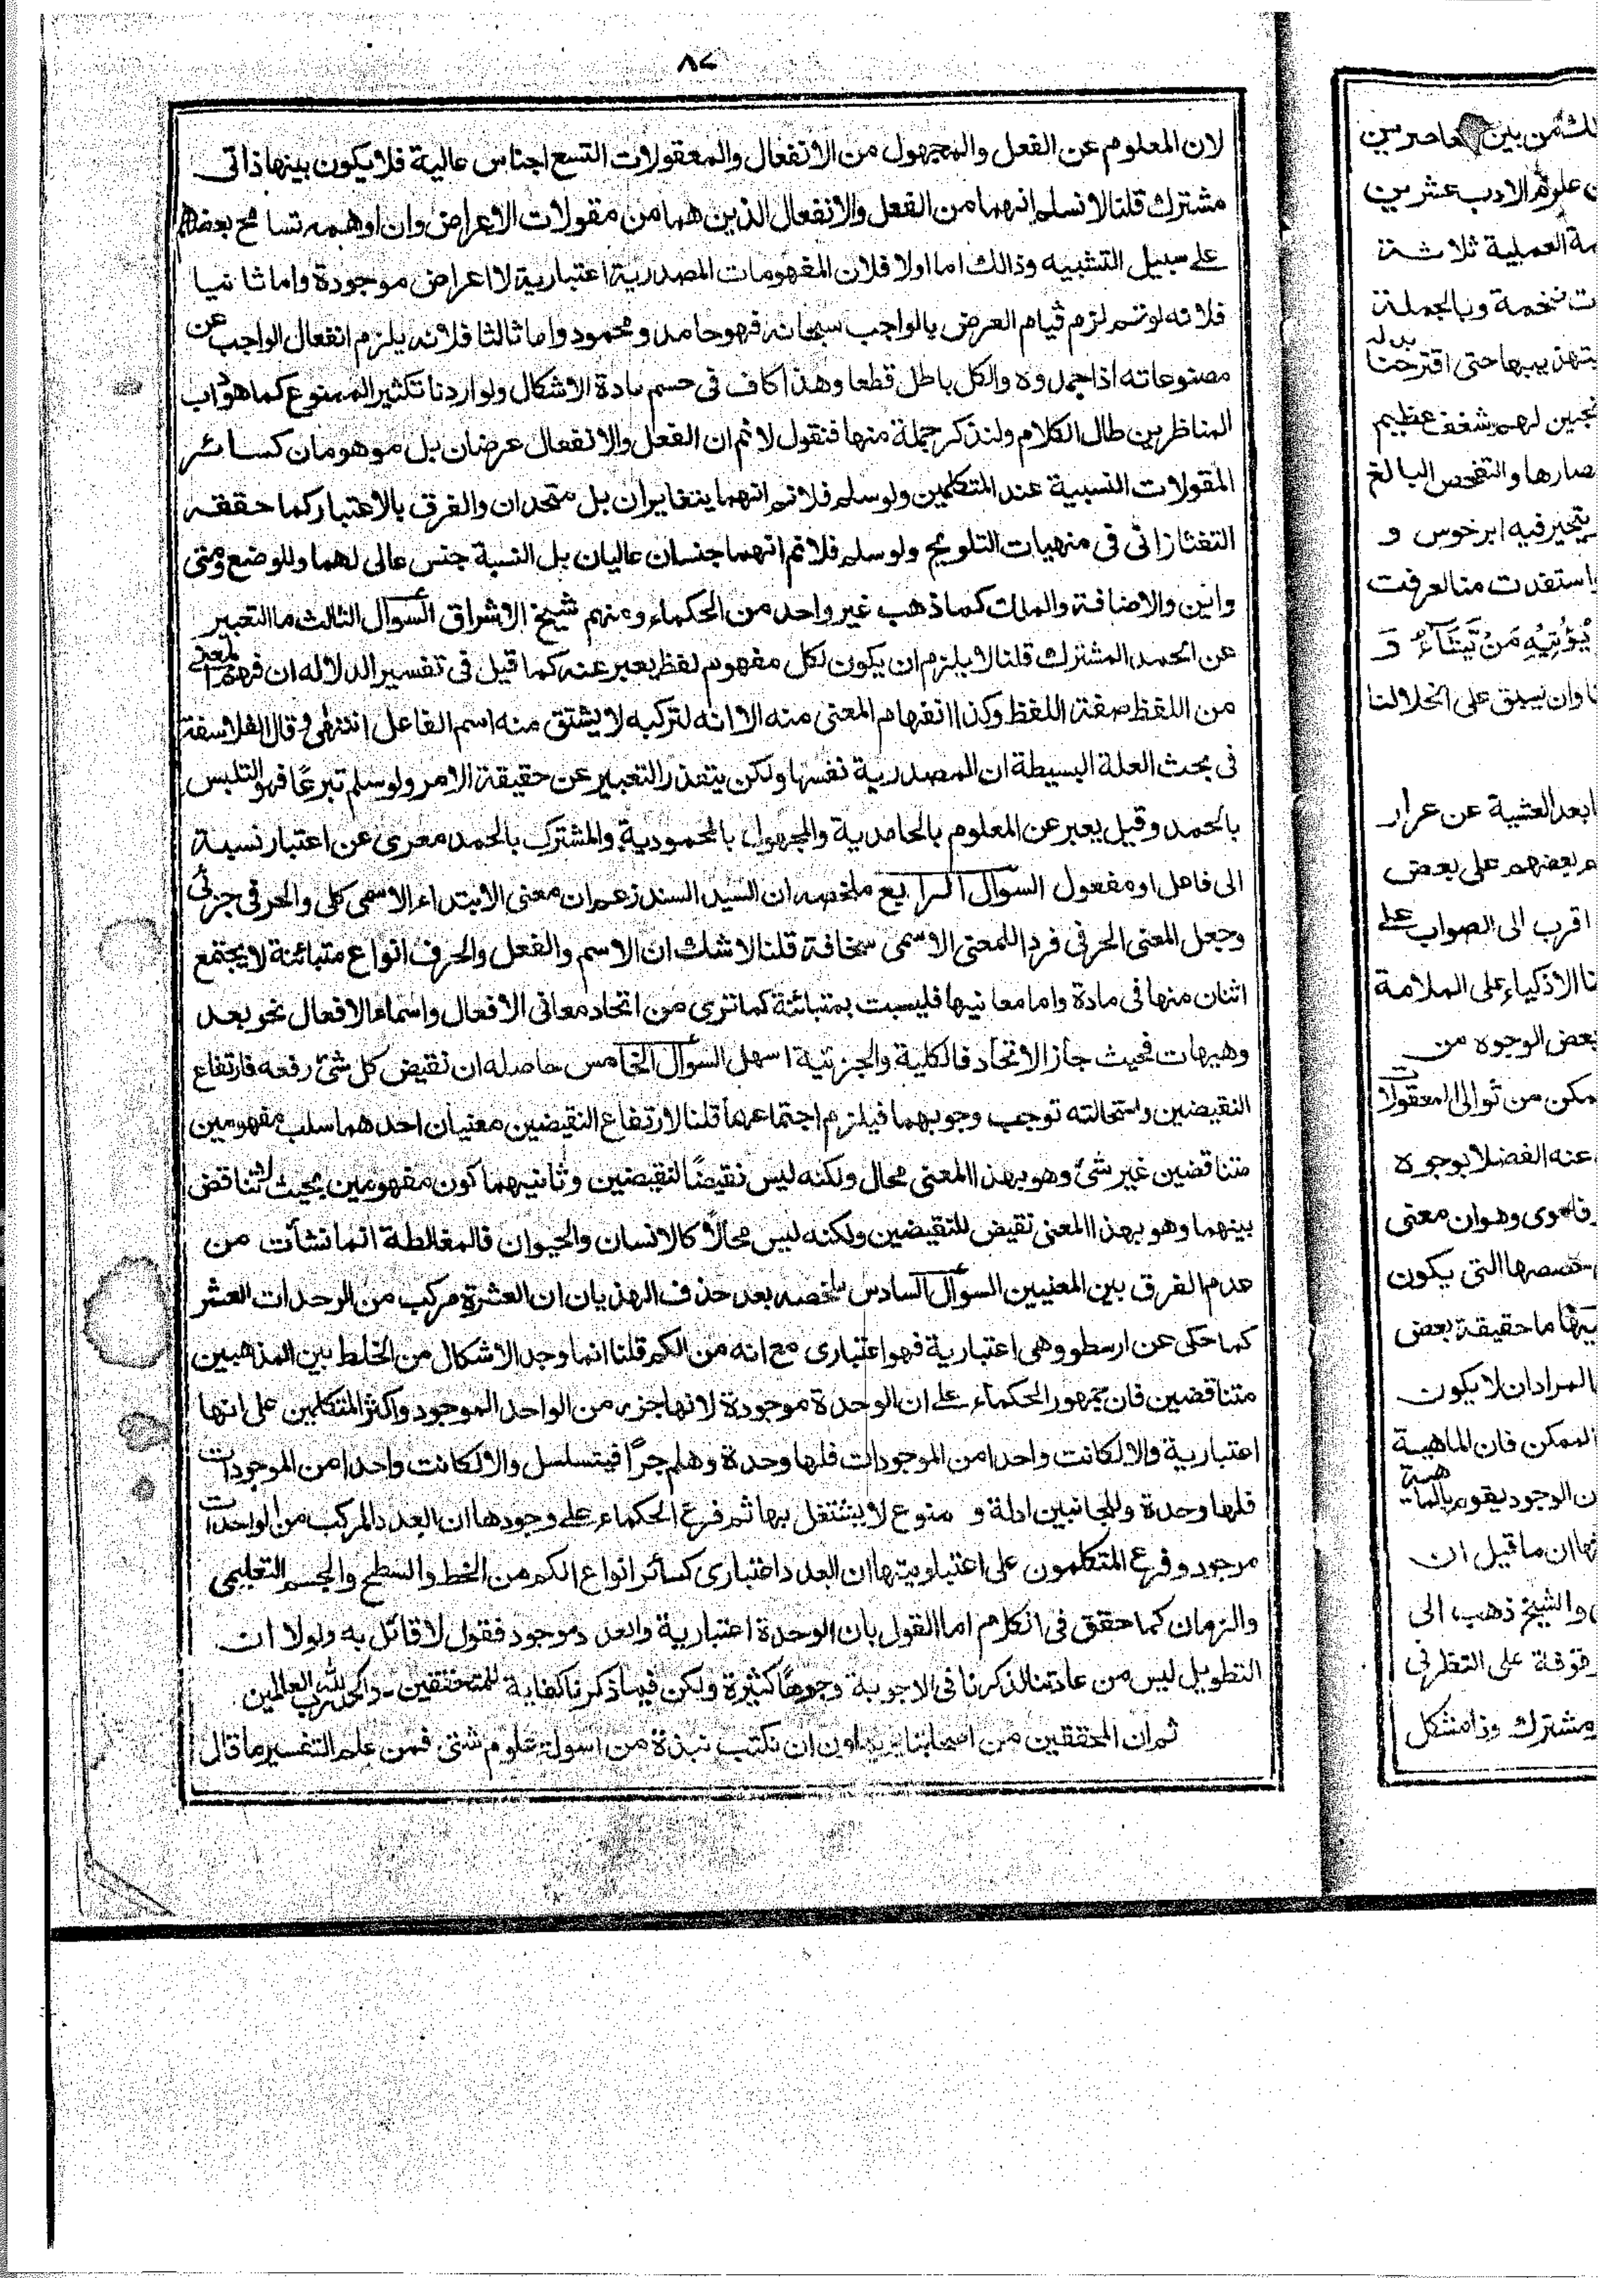 ٨٧
لان المعلوم عن الفعل والمجهول من الانفعال والمعقولات التسع اجناس عالية فلا يكون بينها ذاتى
مشترك قلنا لا نسلم انهما من الفعل والانفعال الذين هما من مقولات الاعراض وان اوهمه تسامح بعضهم
على سبيل التشبيه وذالك اما اولا فلان المفهومات المصدرية اعتبارية لا اعراض موجودة واما ثانيا
فلانه لو تم لزم قيام العرض بالواجب سبحانه فهو حامد ومحمود واما ثالثا فلانه يلزم انفعال الواجب عن
مصنوعاته اذا حمدوه والكل باطل قطعا وهذا كاف فى حسم مادة الاشكال ولو اردنا تكثير الممنوع كما هو داب
المناظرين طال الكلام ولنذكر جملة منها فنقول لا نم ان الفعل والانفعال عرضان بل موهومان كسائر
المقولات النسبية عند المتكلمين ولو سلم فلا نم انهما يتغايران بل متحدان والفرق بالاعتبار كما حققه
التفتازانى فى منهيات التلويح ولو سلم فلا نم انهما جنسان عاليان بل النسبة جنس عالى لهما وللوضع ومتى
واين والاضافة والملك كما ذهب غير واحد من الحكماء ومنهم شيخ الاشراق السوال الثالث ما التعبير
عن الحمد المشترك قلنا لا يلزم ان يكون لكل مفهوم لفظ يعبر عنه كما قيل فى تفسير الدلاله ان فهم المعنى
من اللفظ صفة اللفظ وكذا انفهام المعنى منه الا انه لتركبه لا يشتق منه اسم الفاعل انتهى وقال الفلاسفة
فى بحث العلة البسيطة ان المصدرية نفسها ولكن يتعذر التعبير عن حقيقة الامر ولو سلم تبرعًا فهو التلبس
بالحمد وقيل يعبر عن المعلوم بالحامدية والمجهول بالمحمودية والمشترك بالحمد معرى عن اعتبار نسبة
الى فاعل او مفعول السوال الرابع ملخصه ان السيد السند زعم ان معنى الابتداء الاسمى كلى والحرفى جزئى
وجعل المعنى الحرفى فردا للمعنى الاسمى سخافة قلنا لا شك ان الاسم والفعل والحرف انواع متبائنة لا يجتمع
اثنان منها فى مادة واما معانيها فليست بمتبائنة كما ترى من اتحاد معانى الافعال واسماء الافعال نحو بعد
وهيهات فحيث جاز الاتحاد فالكلية والجزئية اسهل السوال الخامس حاصله ان نقيض كل شئ رفعه فارتفاع
النقيضين واستحالته توجب وجوبهما فيلزم اجتماعهما قلنا لارتفاع النقيضين معنيان احدهما سلب مفهومين
متناقضين غير شئ وهو بهذا المعنى محال ولكنه ليس نقيضًا لنقيضين وثانيهما كون مفهومين بحيث لا تناقض
بينهما وهو بهذا المعنى نقيض للنقيضين ولكنه ليس محالًا كالانسان والحيوان فالمغالطة انما نشأت من
عدم الفرق بين المعنيين السوال السادس ملخصه بعد حذف الهذيان ان العشرة مركب من الوحدات العشر
كما حكى عن ارسطو وهى اعتبارية فهو اعتبارى مع انه من الكم قلنا انما وجد الاشكال من الخلط بين المذهبين
متناقضين فان جمهور الحكماء على ان الوحدة موجودة لانها جزء من الواحد الموجود واكثر المتكلمين على انها
اعتبارية والا لكانت واحدا من الموجودات فلها وحدة وهلم جرًا فيتسلسل والا لكانت واحدا من الموجودات
فلها وحدة وللجانبين ادلة و منوع لا يشتغل بها ثم فرع الحكماء على وجودها ان العدد المركب من الوحدات
موجود وفرع المتكلمون على اعتباريتها ان العدد اعتبارى كسائر انواع الكم من الخط والسطح والجسم التعليمى
والزمان كما حقق فى الكلام اما القول بان الوحدة اعتبارية والعدد موجود فقول لا قائل به ولولا ان
التطويل ليس من عادتنا لذكرنا فى الاجوبة وجوهًا كثيرة ولكن فيما ذكرنا كفاية للمتحققين۔ والحمد لله رب العالمين
ثم ان المحققين من اصحابنا ان نكتب نبذة من اسولة علوم شتى فمن علم التفسير ما قال
من بين حاصرين
علوم الادب عشرين
العملية ثلاشة
وبالجملة
بها حتى اقترحنا
لهم شغف عظيم
والتفحص البالغ
يتحير فيه ابرخوس و
استفدت منا لعرفت
يُؤْتِيْهِ مَنْ يَّشَآءُ وَ
وان على اخلالنا
بعد العشية عن عرار
بعضهم على بعض
اقرب الى الصواب على
الاذكياء على الملامة
بعض الوجوه من
من توالى المعقولات
عنه الفضلا بوجوه
وهو ان معنى
التى يكون
ما حقيقة بعض
المراد ان لا يكون
الممكن فان الماهية
الوجود يقوم بالماهية
ان ما قيل ان
والشيخ ذهب الى
على التقلر فى
مشترك وذا مشكل